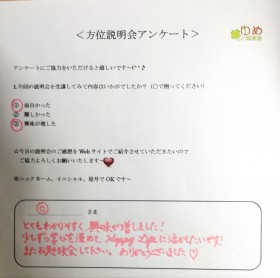 ゆめ
＜方位説明会アンケート＞
アンケートにご協力をいただけると嬉しいです～(^^♪
1.今回の説明会を受講してみて内容はいかがでしたか？（○で囲ってください）
① 面白かった
2 難しかった
③ 興味が増した
☆今日の説明会のご感想をWebサイトでご紹介させていただきたいので
ご協力よろしくお願いいたします～
※ニックネーム、イニシャル、屋号でOKです～
さま
とてもわかりやすく、興味が増しました！
少しずつ学びを深めて、Happy Lifeに活かしたいです！
またお勉強会して下さい。ありがとうございました♡